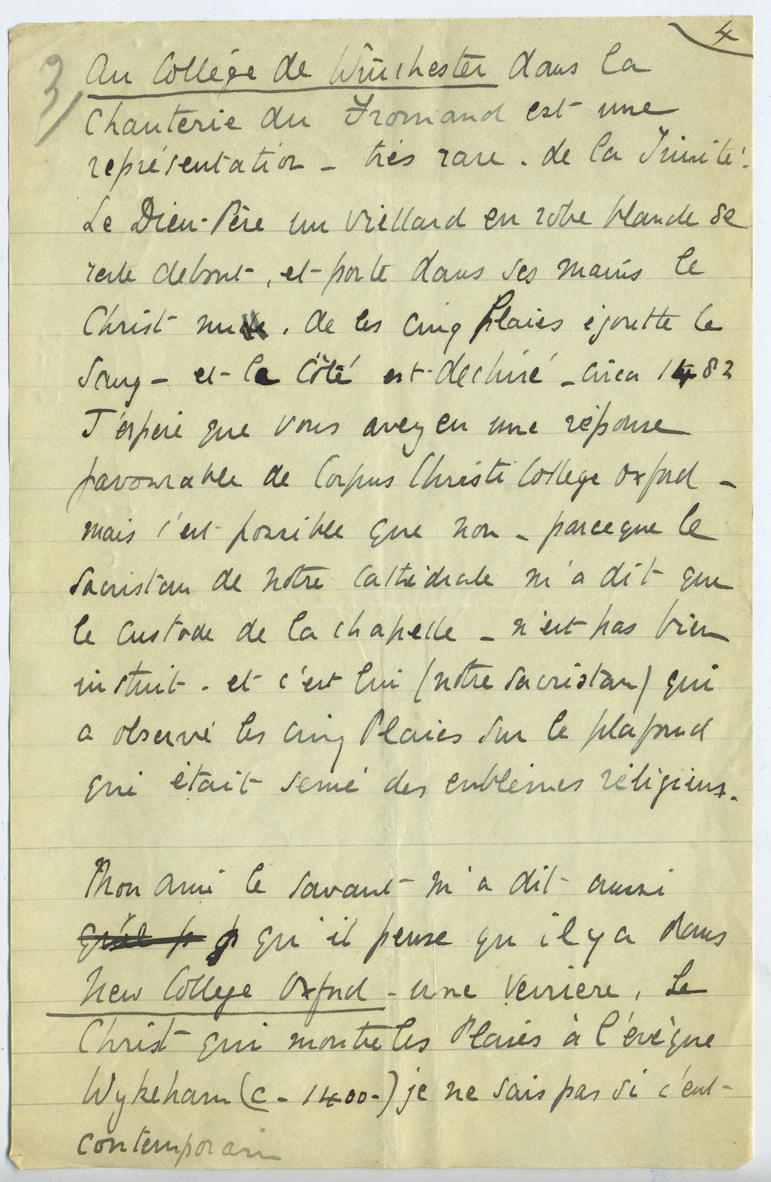 4
3/
Au Collège de Winchester dans la
Chanterie du Fromand est une
représentation - très rare - de la Trinité.
Le Dieu-Père un viellard en robe blande se
reste debout, et porte dans ses mains le
Christ nu. de les cinq Plaies égoutte le
Sang - et le Côté est déchiré - circa 1482
J'éspère que vous avez eu une réponse
favourable de Corpus Christi College Oxford -
mais c'est possible que non - parceque le
sacristan de notre Cathédrale m'a dit que
le Custode de la chapelle - n'est pas bien
instruit - et c'est lui (notre Sacristan) qui
a observé les cinq Plaies sur le plafond
qui était semé des emblèmes réligieux.
Mon ami le savant m'a dit aussi
qu'il p p qu'il pense qu'il y a dans
New College Oxford - une verrière, Le
Christ qui montre les Plaies à l'évêque
Wykeham (C - 1400-) je ne sais pas si c'est
contemporain